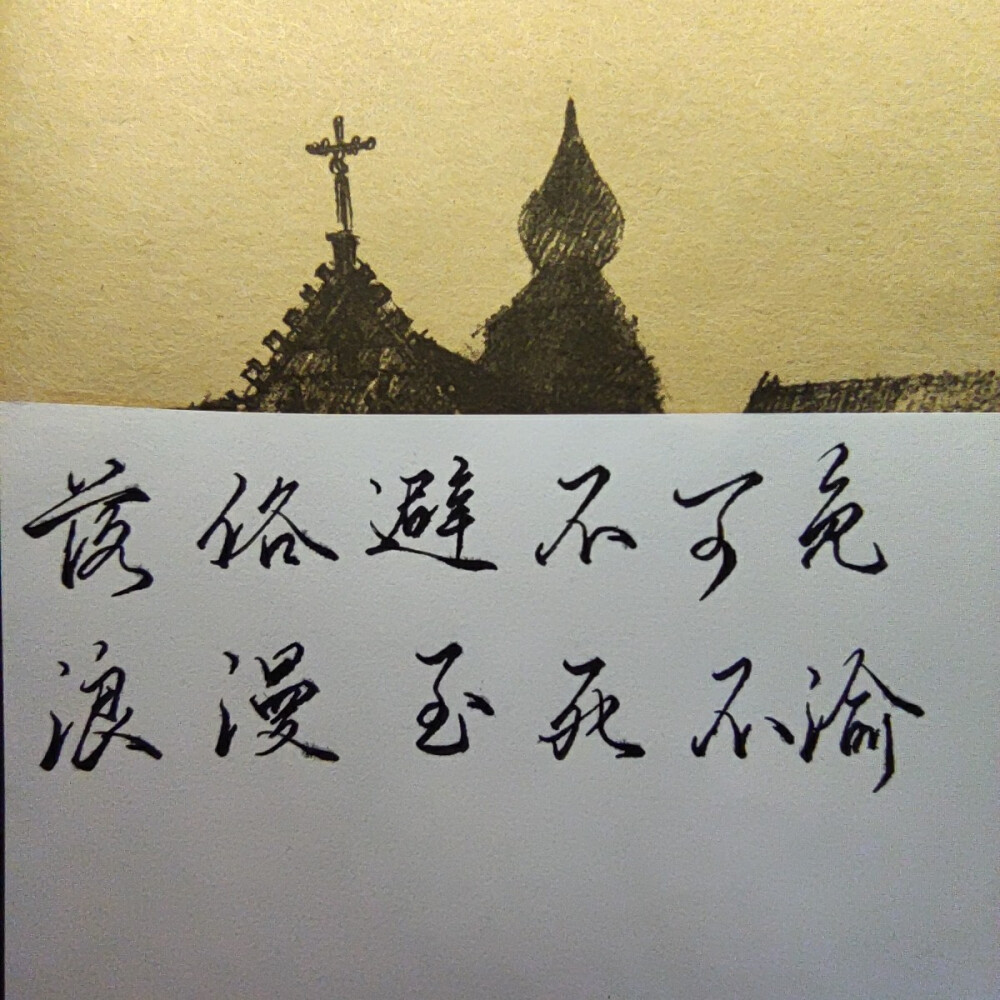 落俗避不可免
浪漫至死不渝